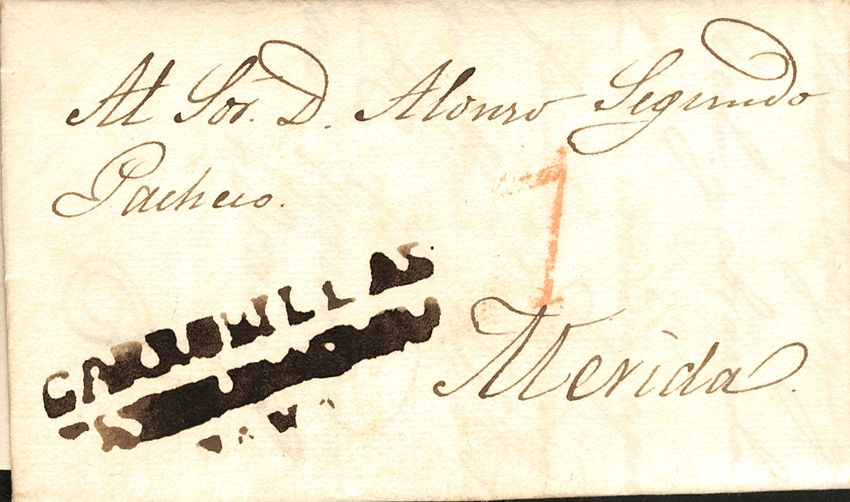 Al Sor. D. Alonso Segundo
Pacheco.
1
GARROBILLAS
Merida